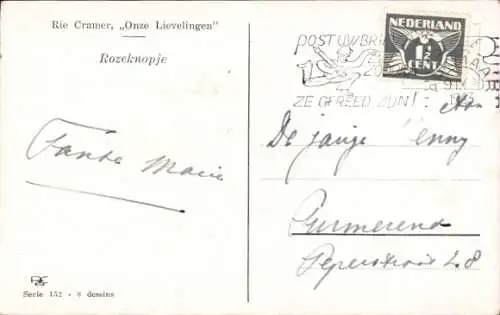 Rie Cramer, „Onze Lievelingen"
Rozeknopje
Tante Marie
Serie 152 - 8 dessins
POST UW BRI
ZE GEREED ZIJN!
NEDERLAND
1½
CENT
Aan
De jarige Jenny
Purmerend
Peperstraat 28